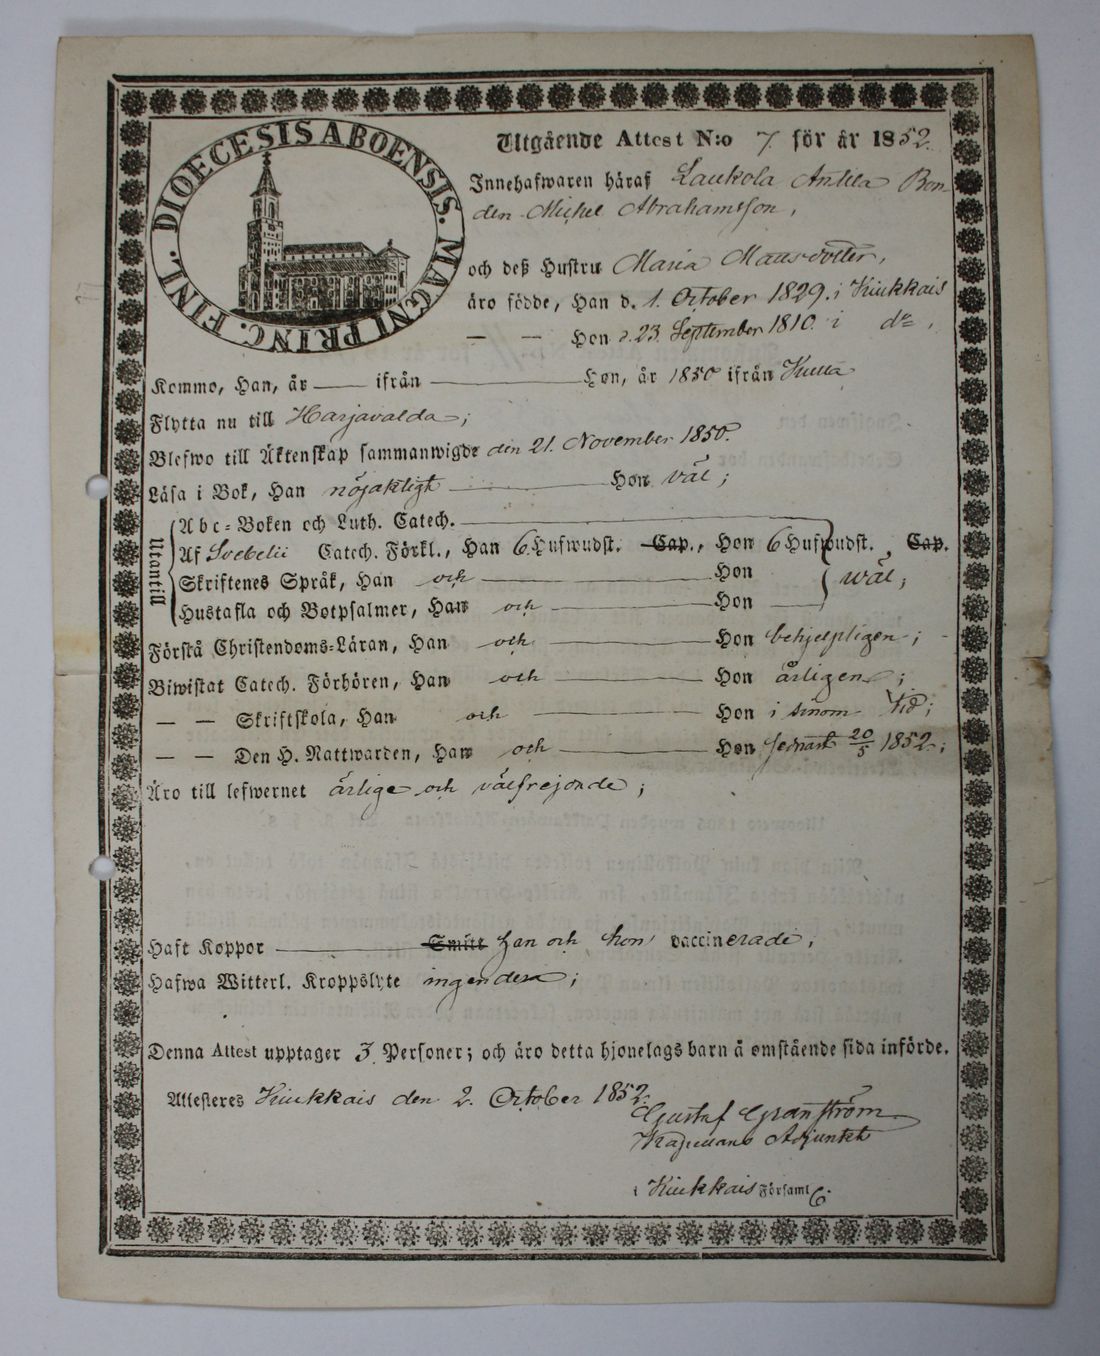 DIOECESIS ABOENSIS. MAGNI PRINC. FINL.
Utgående Attest N:o 7 för år 1852.
Innehafwaren häraf Laukola Anttila Bon
den Michel Abrahamsson,
och deß Hustru Maria Matts dotter,
äro födde, Han d. 1. October 1829. i Kiukkais
— — Hon d. 23 September 1810 i do,
Komme, Han, år — ifrån — Hon, år 1850 ifrån
Flytta nu till Harjavalda;
Blefwo till Äktenskap sammanwigde den 21. November 1850.
Läsa i Bok, Han nöjaktigt — Hon väl;
Utantill
Abc-Boken och Luth. Catech. —
Af Svebelii Catech. Förkl., Han 6 Hufwudst. Cap., Hon 6 Hufwudst., Cap.
Skriftenes Språk, Han och — Hon wäl;
Hustafla och Botpsalmer, Han och — Hon —
Förstå Christendoms-Läran, Han och — Hon behjelpligen;
Biwistat Catech. Förhören, Han och — Hon årligen;
— — Skriftskola, Han och — Hon i sinom tid;
— — Den H. Nattwarden, Han och — Hon sednast 20/5 1852;
Äro till lefwernet ärlige och välfrejdade;
Haft Koppor — Smitt han och hon vaccinerade;
Hafwa Witterl. Kroppslyte ingendera;
Denna Attest upptager 3 Personer; och äro detta hjonelags barn å omstående sida införde.
Attesteres Kiukkais den 2. October 1852.
Gustaf Granström
Adjunkt
i Kiukkais Församl